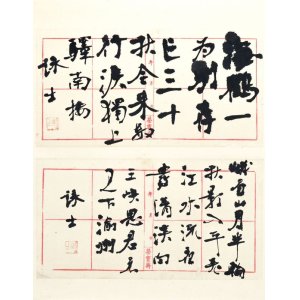 海鶴一
为别存
亡三十
秋今来数
行淚獨上
驛南樓
詠士
峨眉山月半輪
秋影入平羌
江水流夜
發清溪向
三峡思君不
见下渝州
詠士